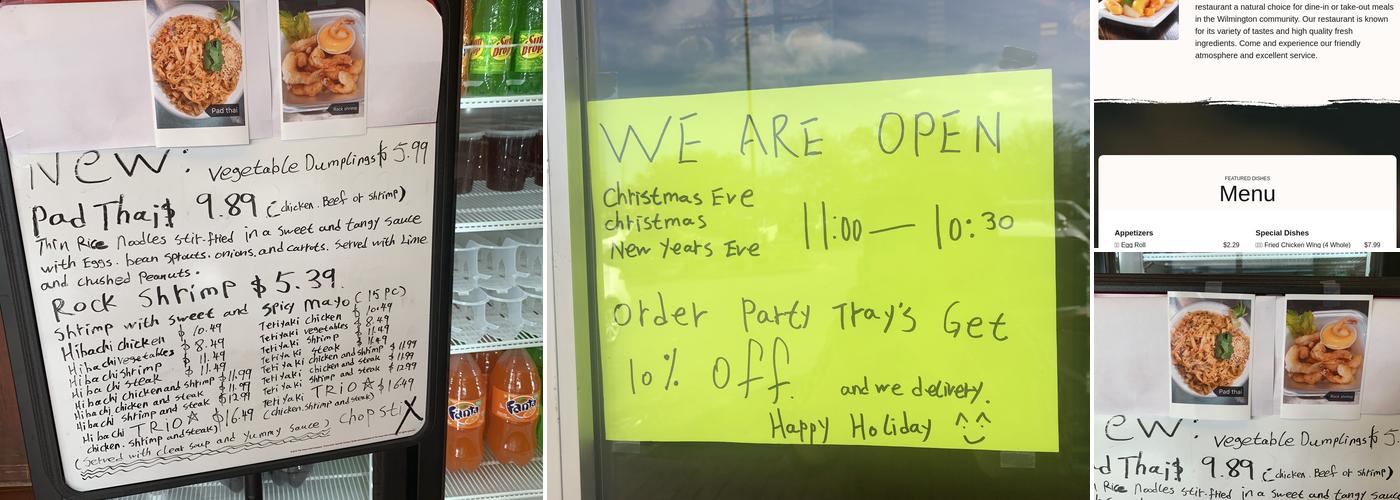 Pad thai
Rock shrimp
New: vegetable Dumplings $5.99
Pad Thai $ 9.89 (chicken. Beef or shrimp)
Thin Rice Noodles stir-fried in a sweet and tangy sauce
with Eggs. bean sprouts. onions. and carrots. Served with Lime
and crushed Peanuts.
Rock Shrimp $5.39
Shrimp with sweet and spicy mayo (15 pc)
Hibachi chicken $ 10.49
Hibachi vegetables $ 8.49
Hibachi shrimp $ 11.49
Hibachi steak $ 11.49
Hibachi chicken and shrimp $11.99
Hibachi chicken and steak $ 11.99
Hibachi shrimp and steak $12.99
Hibachi TRIO ☆ $16.49
(chicken. shrimp and steak)
Teriyaki chicken $ 10.49
Teriyaki vegetables $ 8.49
Teriyaki shrimp $ 11.49
Teriyaki steak $ 11.49
Teriyaki chicken and shrimp $ 11.99
Teriyaki chicken and steak $ 11.99
Teriyaki shrimp and steak $ 12.99
Teriyaki TRIO ☆ $16.49
(chicken. shrimp and steak)
(Served with clear soup and yummy sauce)
chopstiX
Sun
Drop
Fanta
Fanta
WE ARE OPEN
Christmas Eve
christmas
New Years Eve
11:00 — 10:30
Order Party Tray's Get
10% Off.
and we delivery.
Happy Holiday ^^
restaurant a natural choice for dine-in or take-out meals
in the Wilmington community. Our restaurant is known
for its variety of tastes and high quality fresh
ingredients. Come and experience our friendly
atmosphere and excellent service.
FEATURED DISHES
Menu
Appetizers
Egg Roll $2.29
Special Dishes
Fried Chicken Wing (4 Whole) $7.99
Pad thai
Rock shrimp
ew: vegetable Dumplings $5.
d Thai $ 9.89 (chicken. Beef or shrimp)
Rice Noodles stir-fried in a sweet and tangy sau